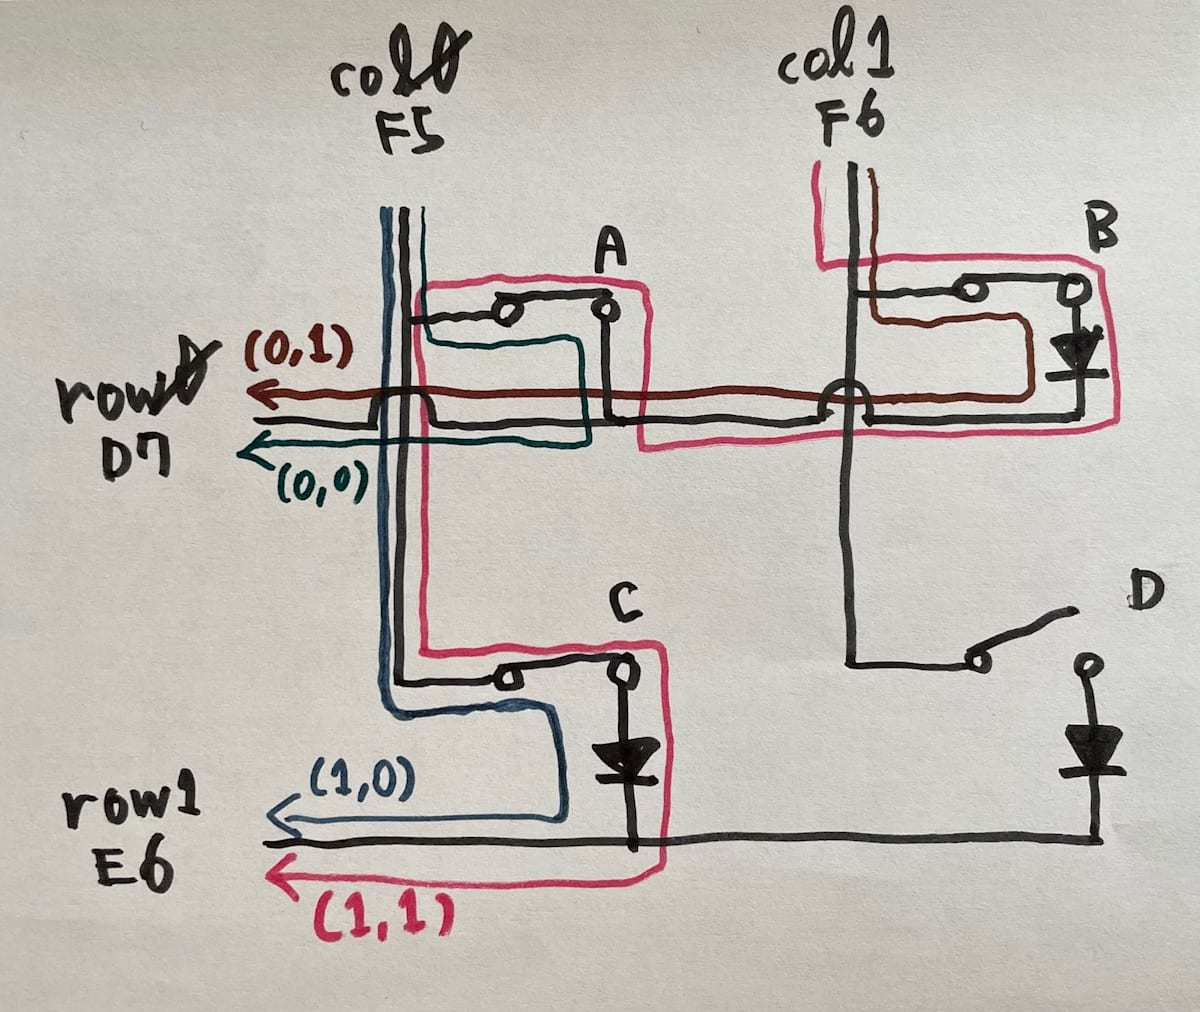 col0
F5
col1
F6
A
B
(0,1)
row0
D7
(0,0)
C
D
(1,0)
row1
E6
(1,1)